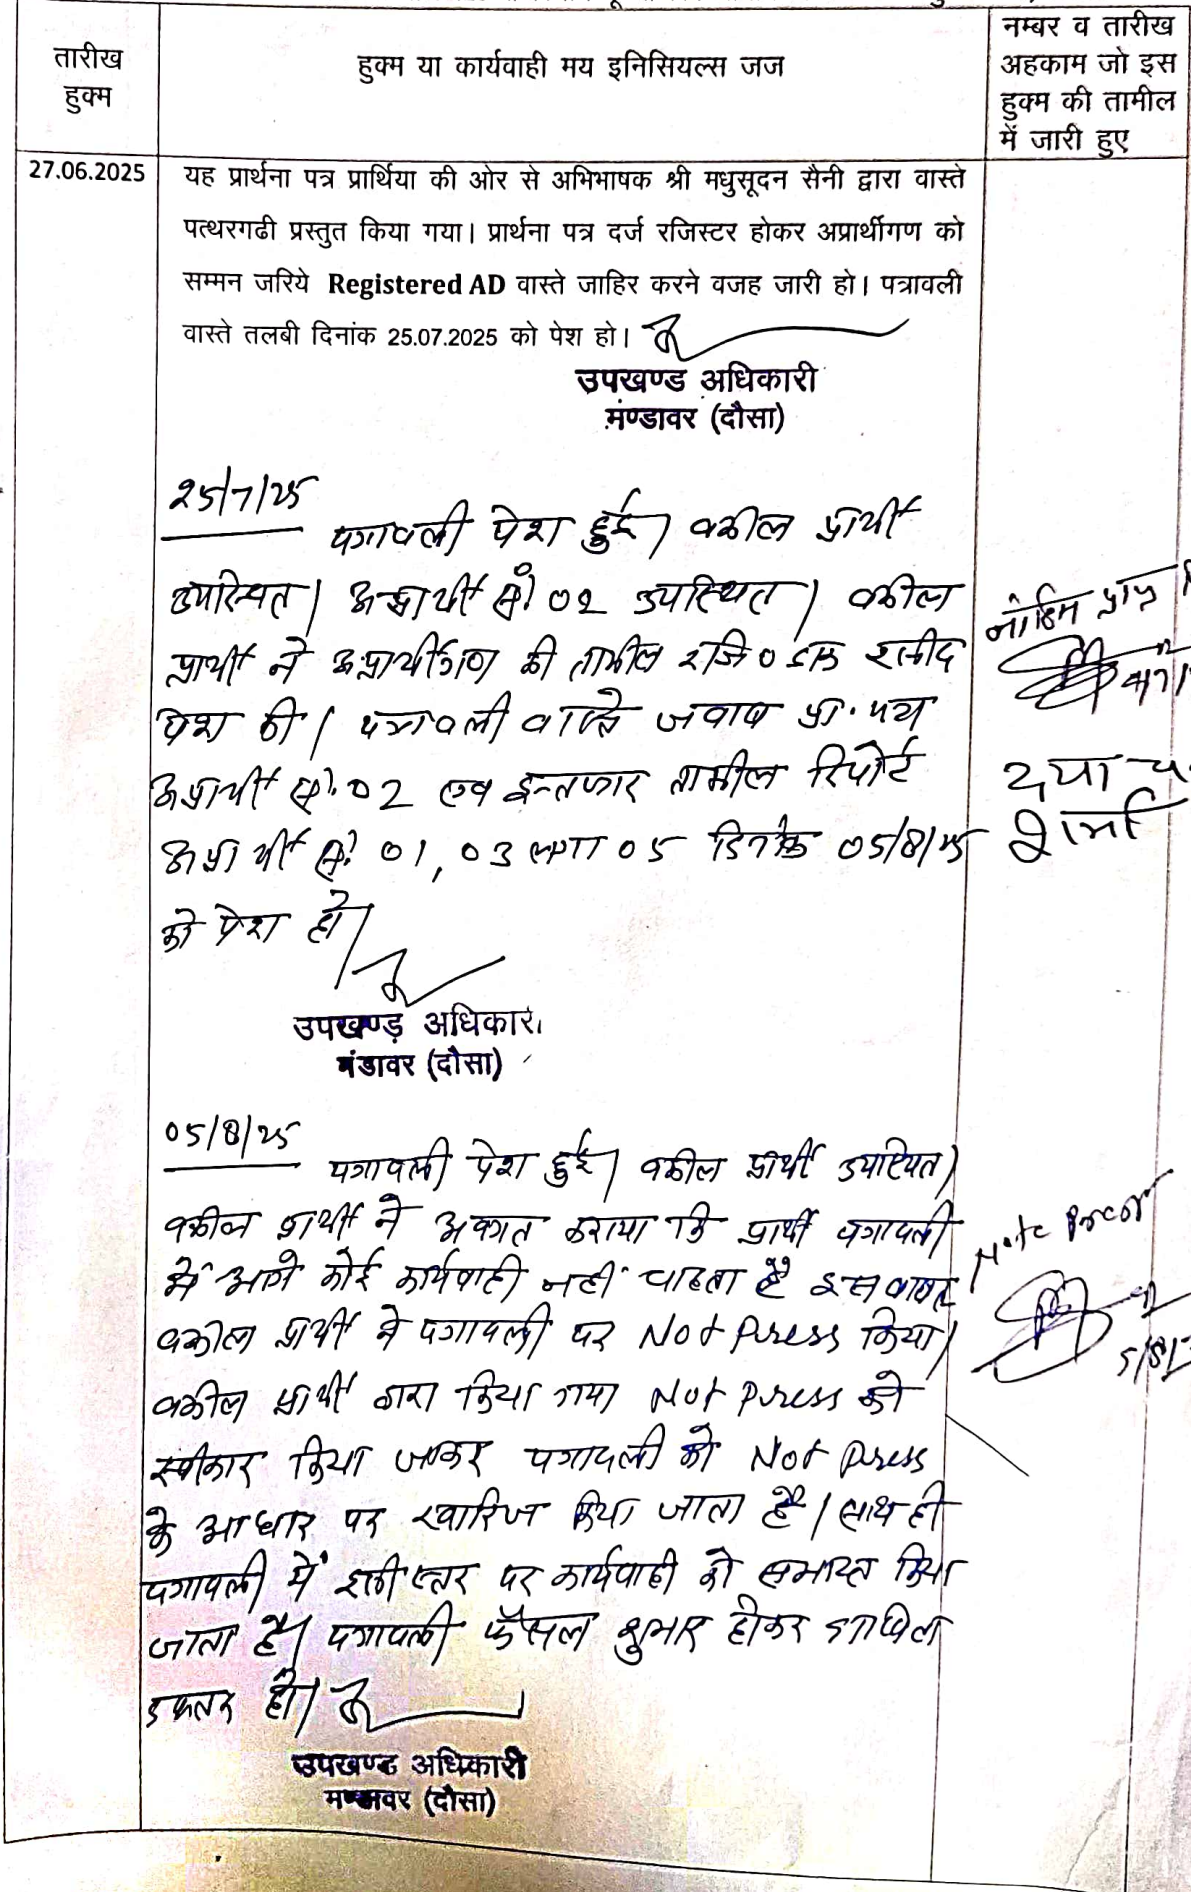 तारीख
हुक्म
हुक्म या कार्यवाही मय इनिसियल्स जज
नम्बर व तारीख
अहकाम जो इस
हुक्म की तामील
में जारी हुए
27.06.2025
यह प्रार्थना पत्र प्रार्थिया की ओर से अभिभाषक श्री मधुसूदन सैनी द्वारा वास्ते
पत्थरगढी प्रस्तुत किया गया। प्रार्थना पत्र दर्ज रजिस्टर होकर अप्रार्थीगण को
सम्मन जरिये Registered AD वास्ते जाहिर करने वजह जारी हो। पत्रावली
वास्ते तलबी दिनांक 25.07.2025 को पेश हो।
उपखण्ड अधिकारी
मण्डावर (दौसा)
25/7/25
पत्रावली पेश हुई। वकील प्रार्थी
उपस्थित। अप्रार्थी सं. 02 उपस्थित। वकील
प्रार्थी ने अप्रार्थीगण की तामील रजि० डाक रसीद
पेश की। पत्रावली वास्ते जवाब प्रा. पत्र
अप्रार्थी सं. 02 एवं इन्तजार तामील रिपोर्ट
अप्रार्थी सं. 01, 03 लगा 05 दिनांक 05/8/25
को पेश हो।
उपखण्ड़ अधिकारी
मंडावर (दौसा)
नोटिस प्राप्त
दया
शर्मा
05/8/25
पत्रावली पेश हुई। वकील प्रार्थी उपस्थित।
वकील प्रार्थी ने अवगत कराया कि प्रार्थी पत्रावली
में आगे कोई कार्यवाही नहीं चाहता है इस बाबत
वकील प्रार्थी ने पत्रावली पर Not Press किया।
वकील प्रार्थी द्वारा किया गया Not Press को
स्वीकार किया जाकर पत्रावली को Not Press
के आधार पर खारिज किया जाता है। साथ ही
पत्रावली में इसी स्तर पर कार्यवाही को समाप्त किया
जाता है। पत्रावली फैसल शुमार होकर दाखिल
दफ्तर हो।
उपखण्ड अधिकारी
मण्डावर (दौसा)
Note
5/8/